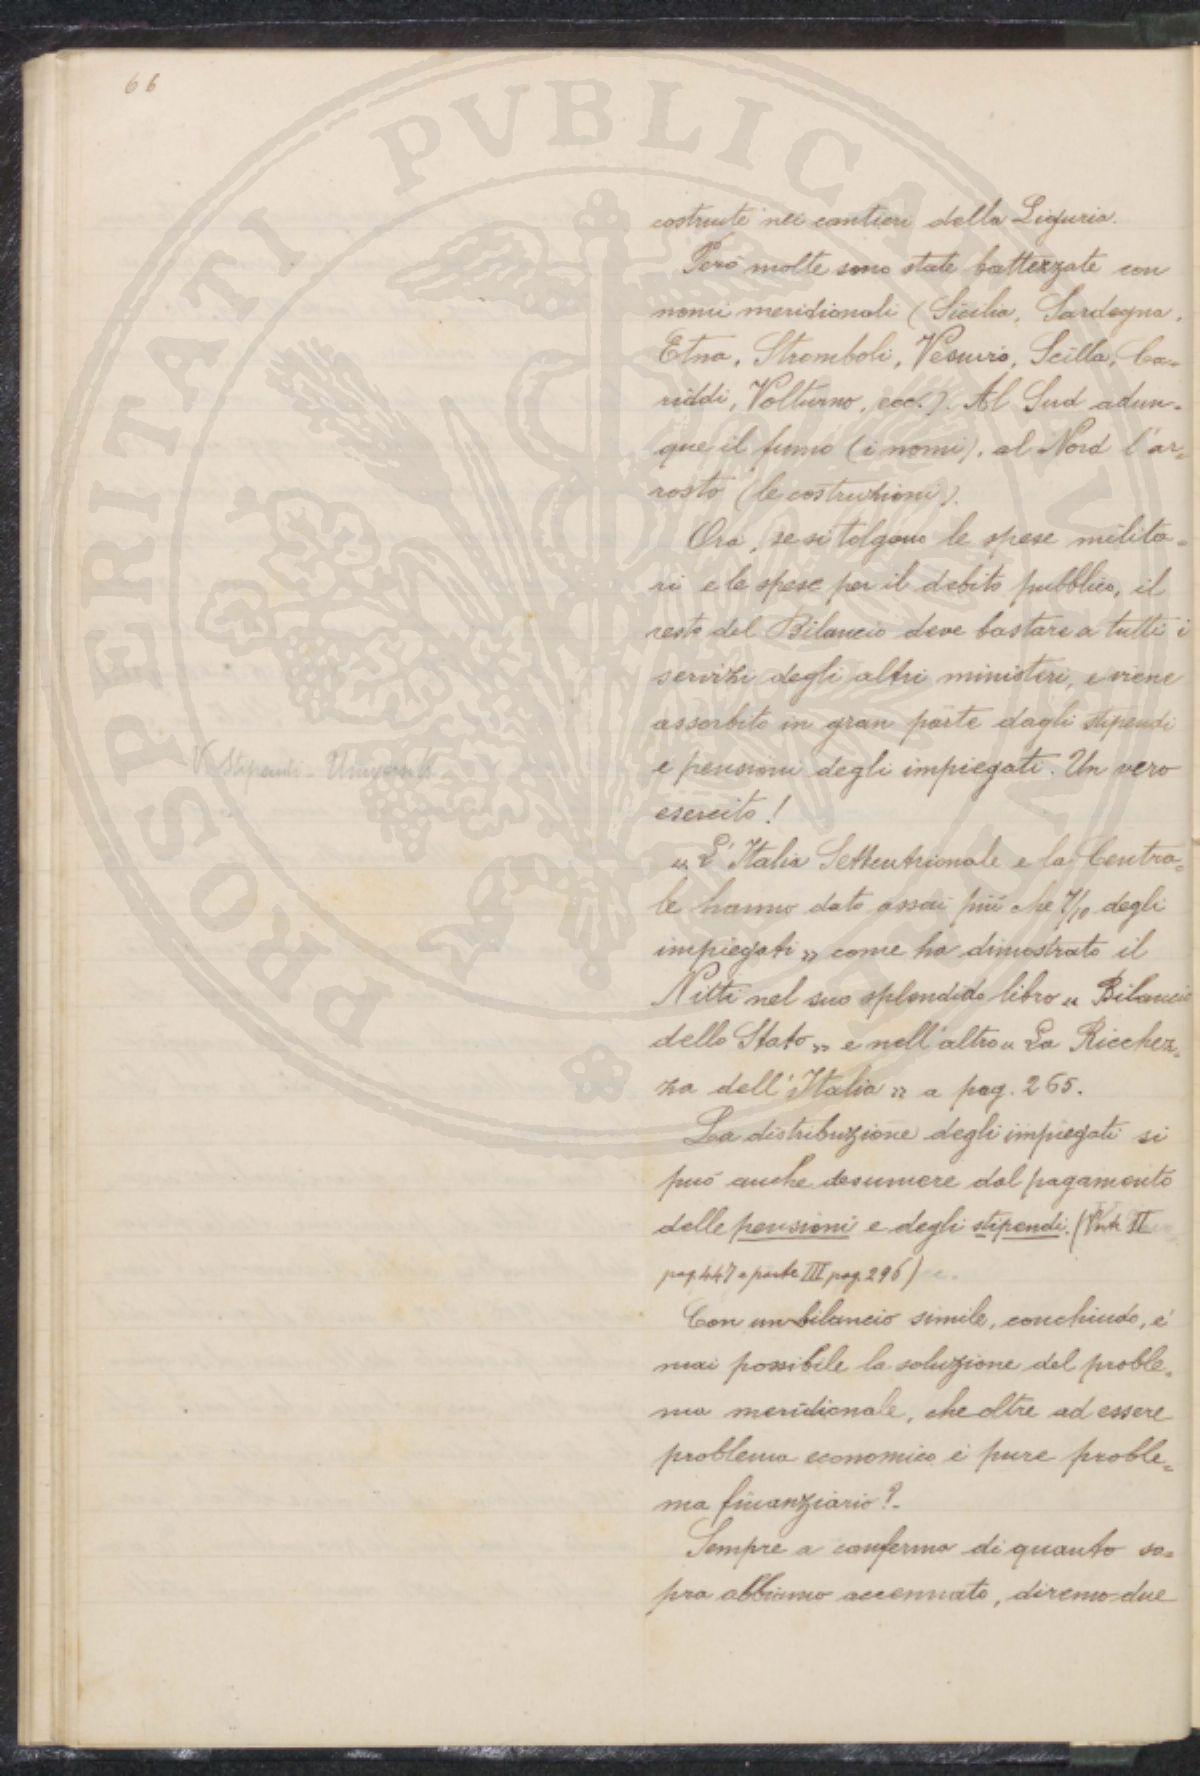 66
costruite nei cantieri della Liguria.
Però molte sono state battezzate con
nomi meridionali (Sicilia, Sardegna,
Etna, Stromboli, Vesuvio, Scilla, Ca=
riddi, Volturno, ecc.). Al Sud adun=
que il fumo (i nomi), al Nord l'ar=
rosto (le costruzioni).
Ora, se si tolgono le spese milita=
ri e le spese per il debito pubblico, il
resto del Bilancio deve bastare a tutti i
servizi degli altri ministeri, e viene
assorbito in gran parte dagli stipendi
V. Stipendi - Università
e pensioni degli impiegati. Un vero
esercito!
„ L'Italia Settentrionale e la Centra=
le hanno dato assai più che 7/10 degli
impiegati „ come ha dimostrato il
Nitti nel suo splendido libro „ Bilancio
dello Stato „ e nell'altro „ La Ricchez=
za dell'Italia „ a pag. 265.
La distribuzione degli impiegati si
può anche desumere dal pagamento
delle pensioni e degli stipendi. (Parte II
pag. 447 e parte III pag. 296)
Con un bilancio simile, conchiudo, è
mai possibile la soluzione del proble=
ma meridionale, che oltre ad essere
problema economico è pure proble=
ma finanziario?
Sempre a conferma di quanto so=
pra abbiamo accennato, diremo due
PROSPERITATI PVBLICAE